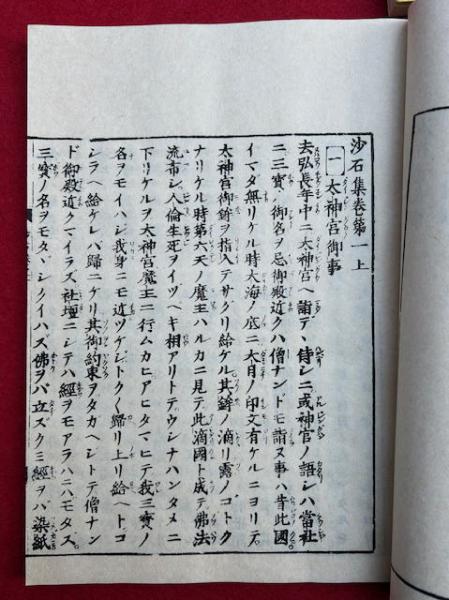 沙石集巻第一上
一 太神宮御事
去弘長年中ニ太神宮ヘ詣デヽ侍シニ或神官ノ語シハ當社
ニ三寳ノ御名ヲ忌御殿近クハ僧ナンドモ詣ヌ事ハ昔此國
イマダ無リケル時大海ノ底ニ大日ノ印文有ケルニヨリテ
太神宮御鉾ヲ指入テサグリ給ケル其鉾ノ滴リ露ノゴトク
ナリケル時第六天ノ魔王ハルカニ見テ此滴國ト成テ佛法
流布シ人倫生死ヲイヅベキ相アリトテウシナハンタメニ
下リケルヲ太神宮魔王ニ行ムカヒアヒタマヒテ我三寳ノ
名ヲモイハジ我身ニモ近ツケジトクトク歸リ上リ給ヘトコ
シラヘ給ケレバ歸ニケリ其御約束ヲタガヘジトテ僧ナン
ド御殿近クマイラズ社壇ニシテハ經ヲモアラハニハモタズ
三寳ノ名ヲモタヾシクイハズ佛ヲバ立ズクミ經ヲバ染紙